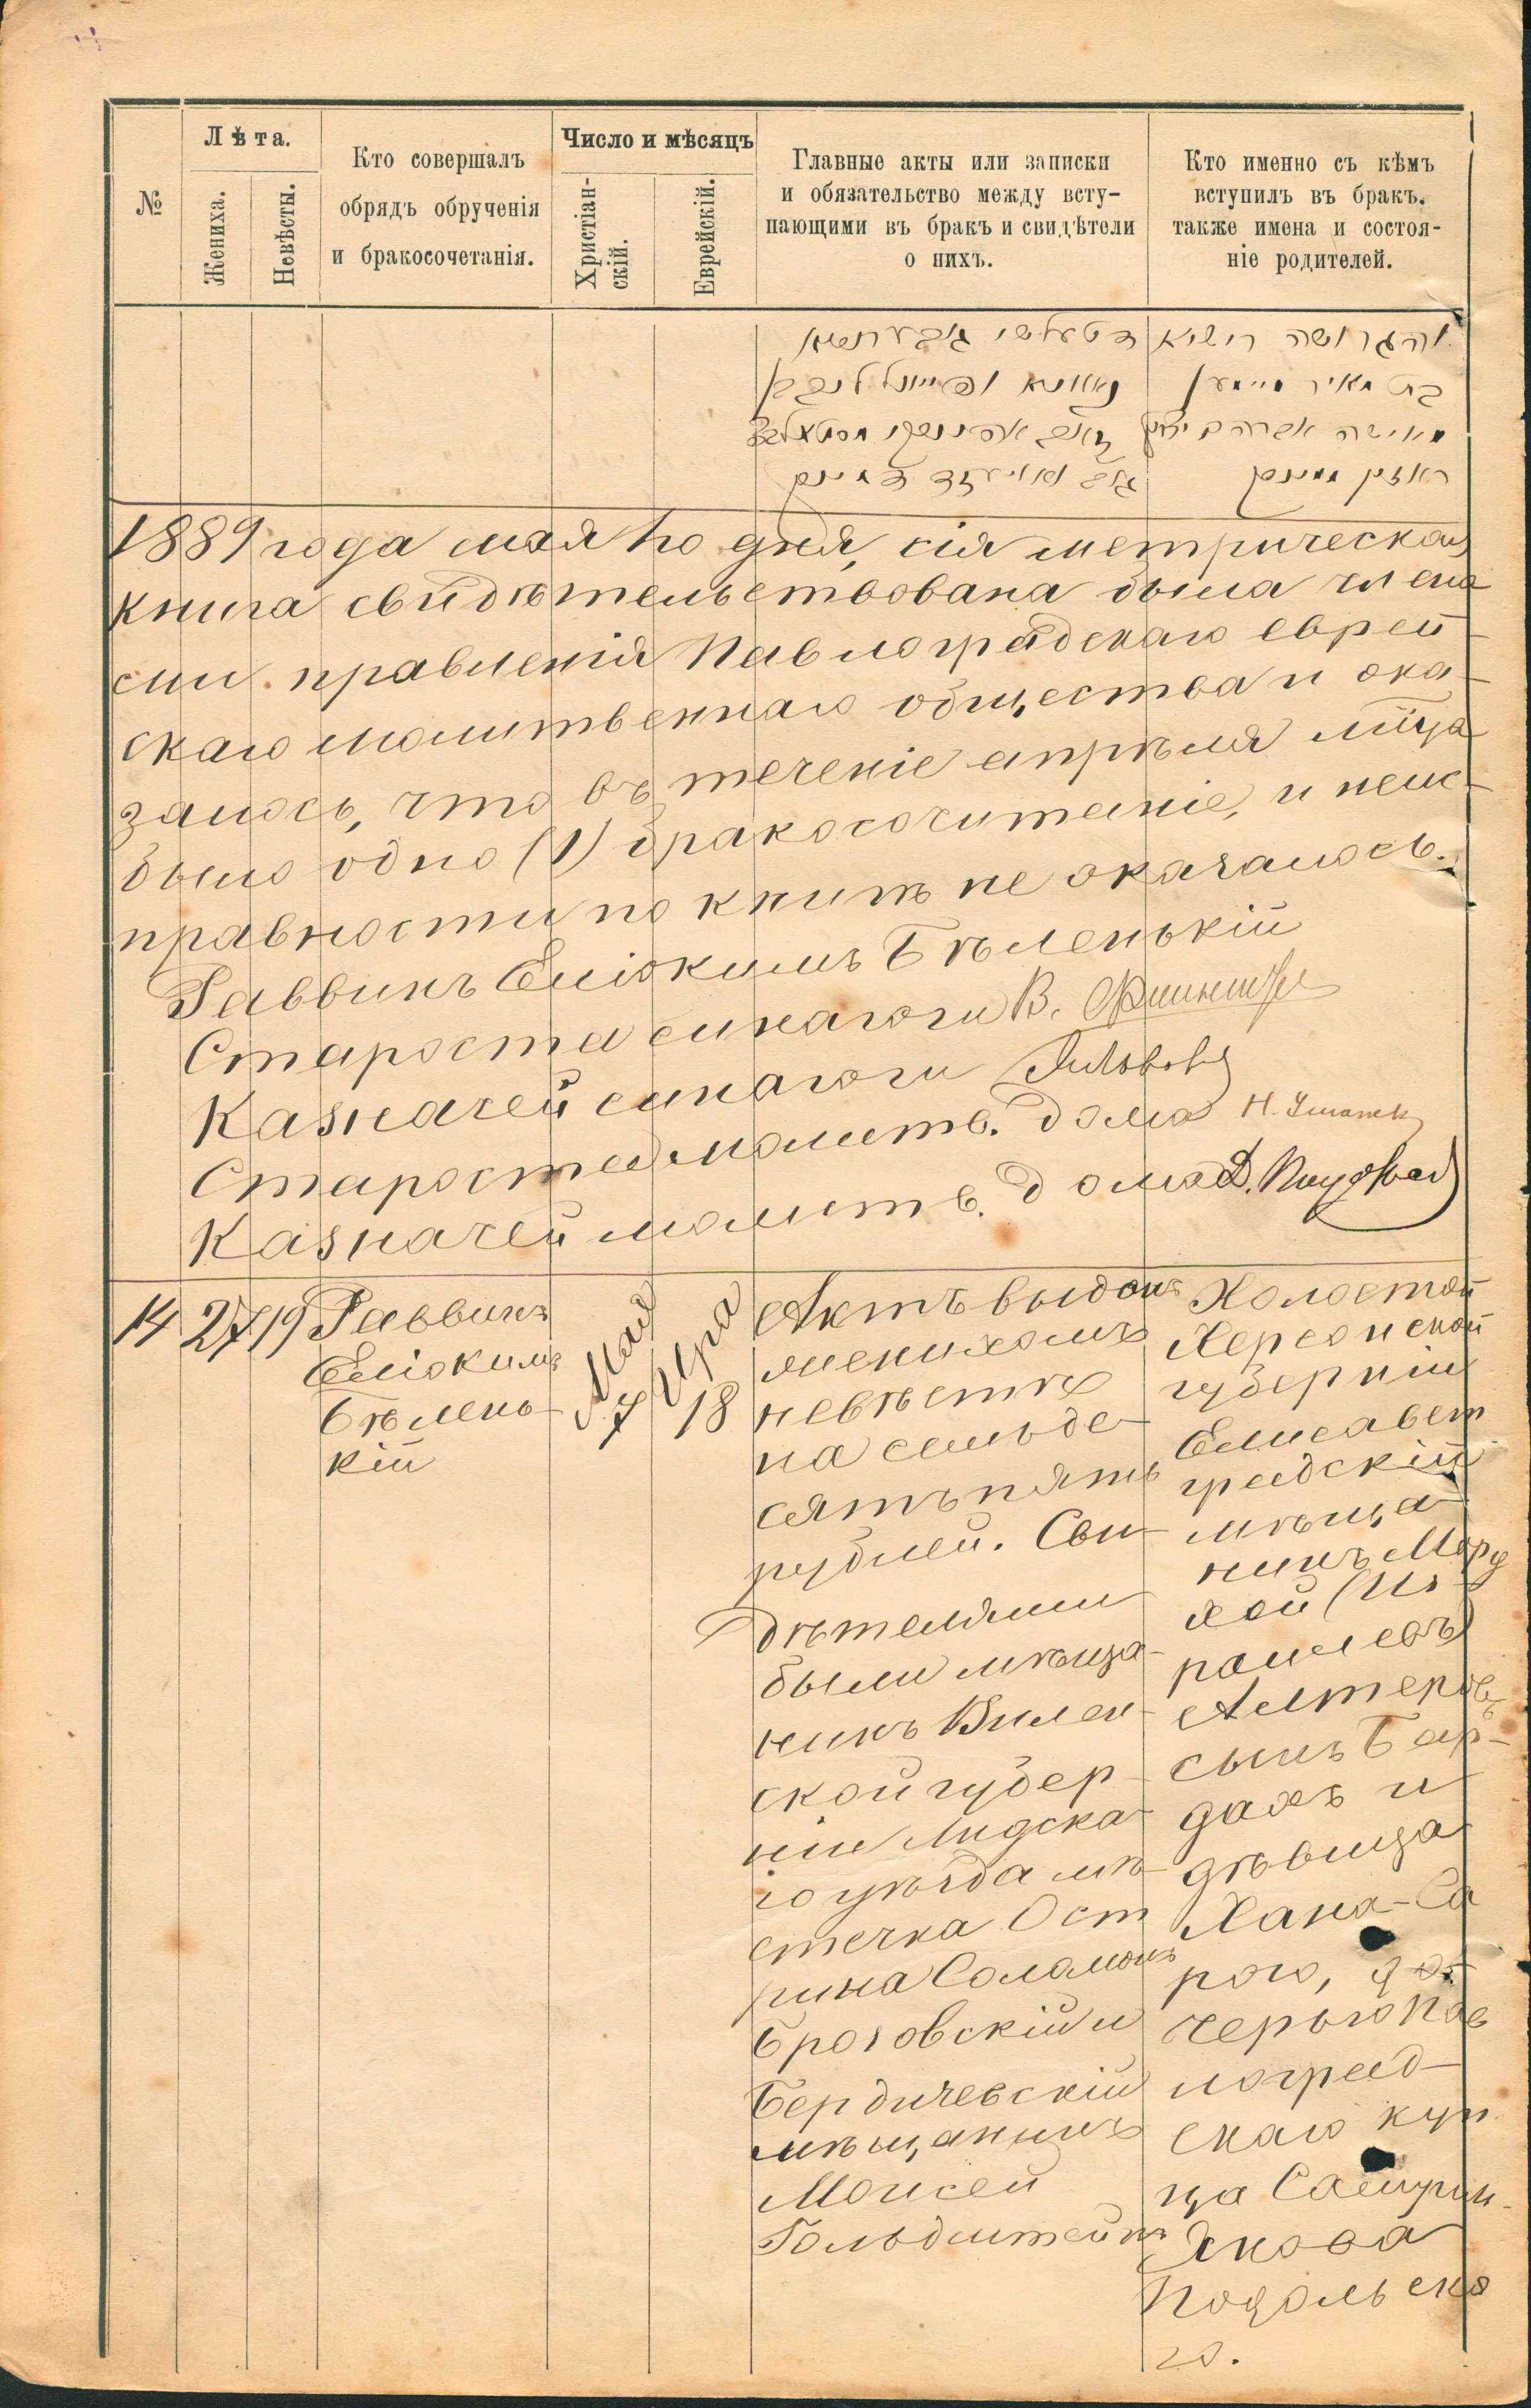 №
Лѣта.
Жениха.
Невѣсты.
Кто совершалъ
обрядъ обрученія
и бракосочетанія.
Число и мѣсяцъ
Христіан-
скій.
Еврейскій.
Главные акты или записки
и обязательство между всту-
пающими въ бракъ и свидѣтели
о нихъ.
Кто именно съ кѣмъ
вступилъ въ бракъ.
также имена и состоя-
ніе родителей.
והגרושה
בת מאיר
1889 года мая дня, сія метрическая
книга свидѣтельствована была члена
ми правленія Павлоградскаго еврей-
скаго молитвеннаго общества и ока-
залось, что въ теченіе апрѣля мѣца
было одно (1) бракосочитаніе, и неис-
правности по книгѣ не оказалось.
Раввинъ Еліокимъ Бѣленькій
Староста синагоги В.
Казначей синагоги
Староста молитв. дома Н.
Казначей молитв. дома Д.
14
27
19
Раввинъ
Еліокимъ
Бѣлень-
кій
Мая
7
Ира
18
Актъ выданъ
женихомъ
невѣстѣ
на семьде-
сятъ пять
рублей. Сви-
дѣтелями
были мѣща-
нинъ Вилен-
ской губер-
ніи Лидска-
го уѣзда мѣ-
стечка Ост
рина Соломонъ
Броговскій и
Бердичевскій
мѣщанинъ
Моисей
Гольдштейнъ
Холостой
Херсонской
губерніи
Елисавет
градскій
мѣща-
нинъМорд
хой (Из-
раилевъ)
Алтеровъ
сынъ Бар-
дахъ и
дѣвица
Хана-Са
рою, до-
черью Пав
лоград-
скаго куп
ца
Якова
Подольска
го.